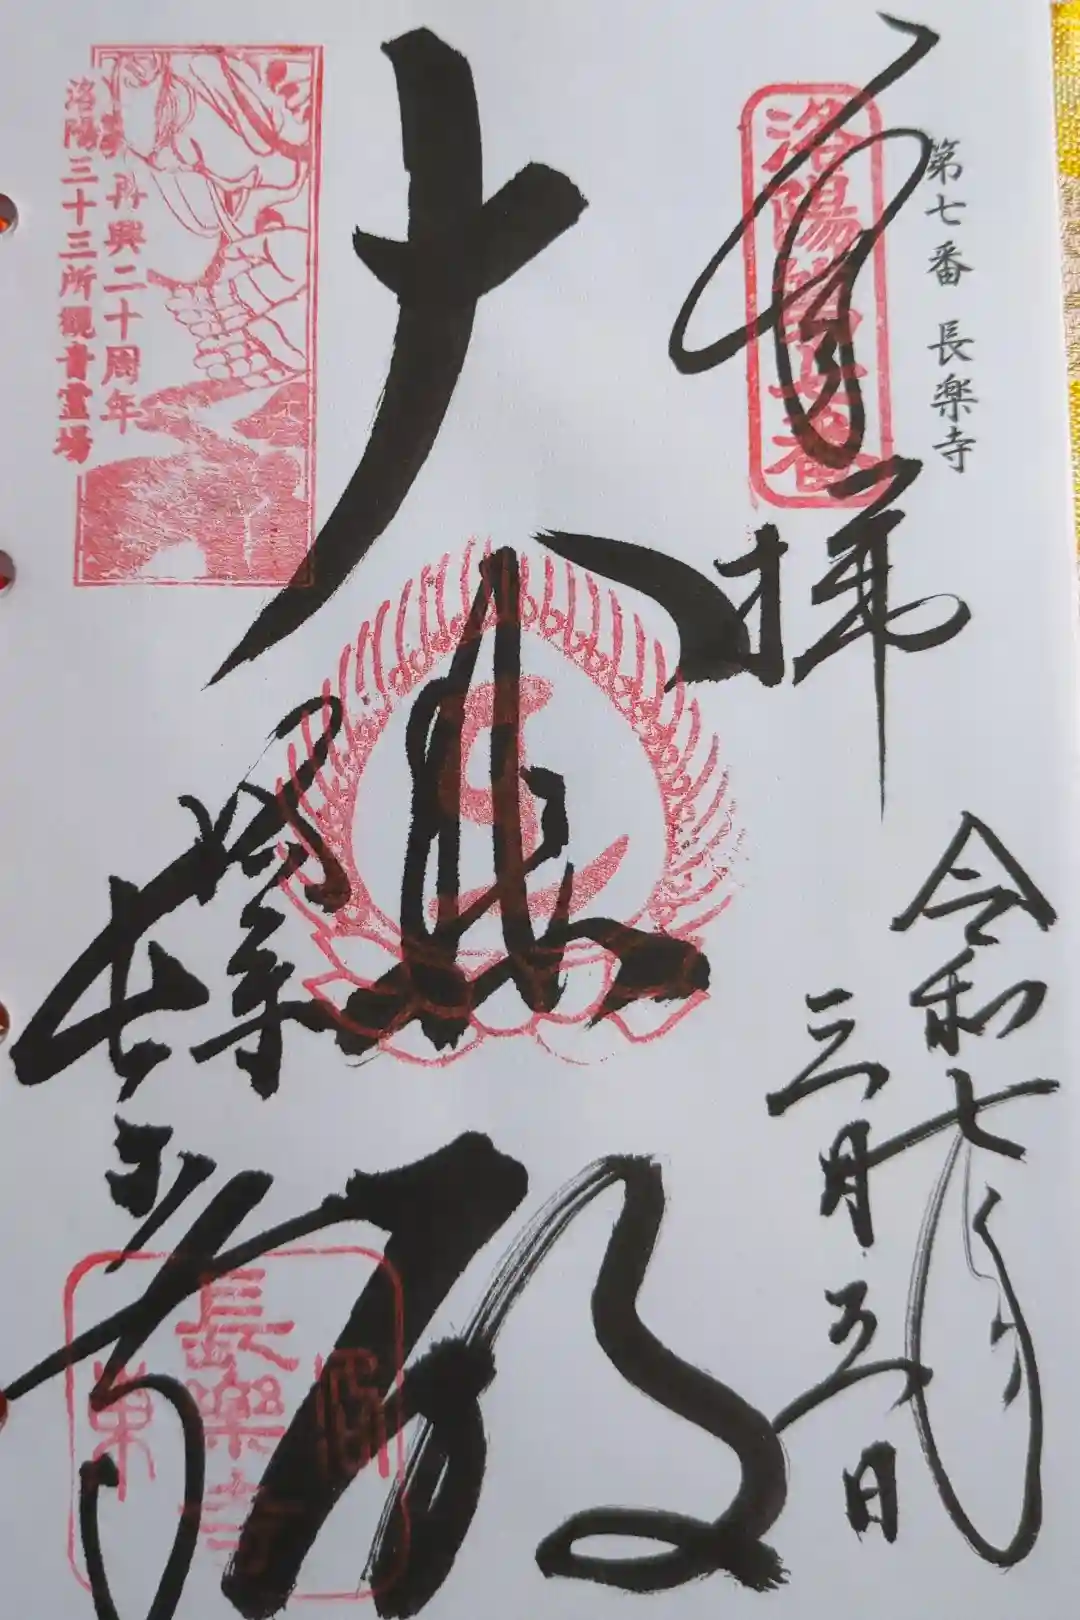 第七番 長楽寺
奉拝
洛陽第七番
令和七年
三月五日
大悲殿
長樂寺
再興二十周年
洛陽三十三所観音霊場
長樂寺
洛
東